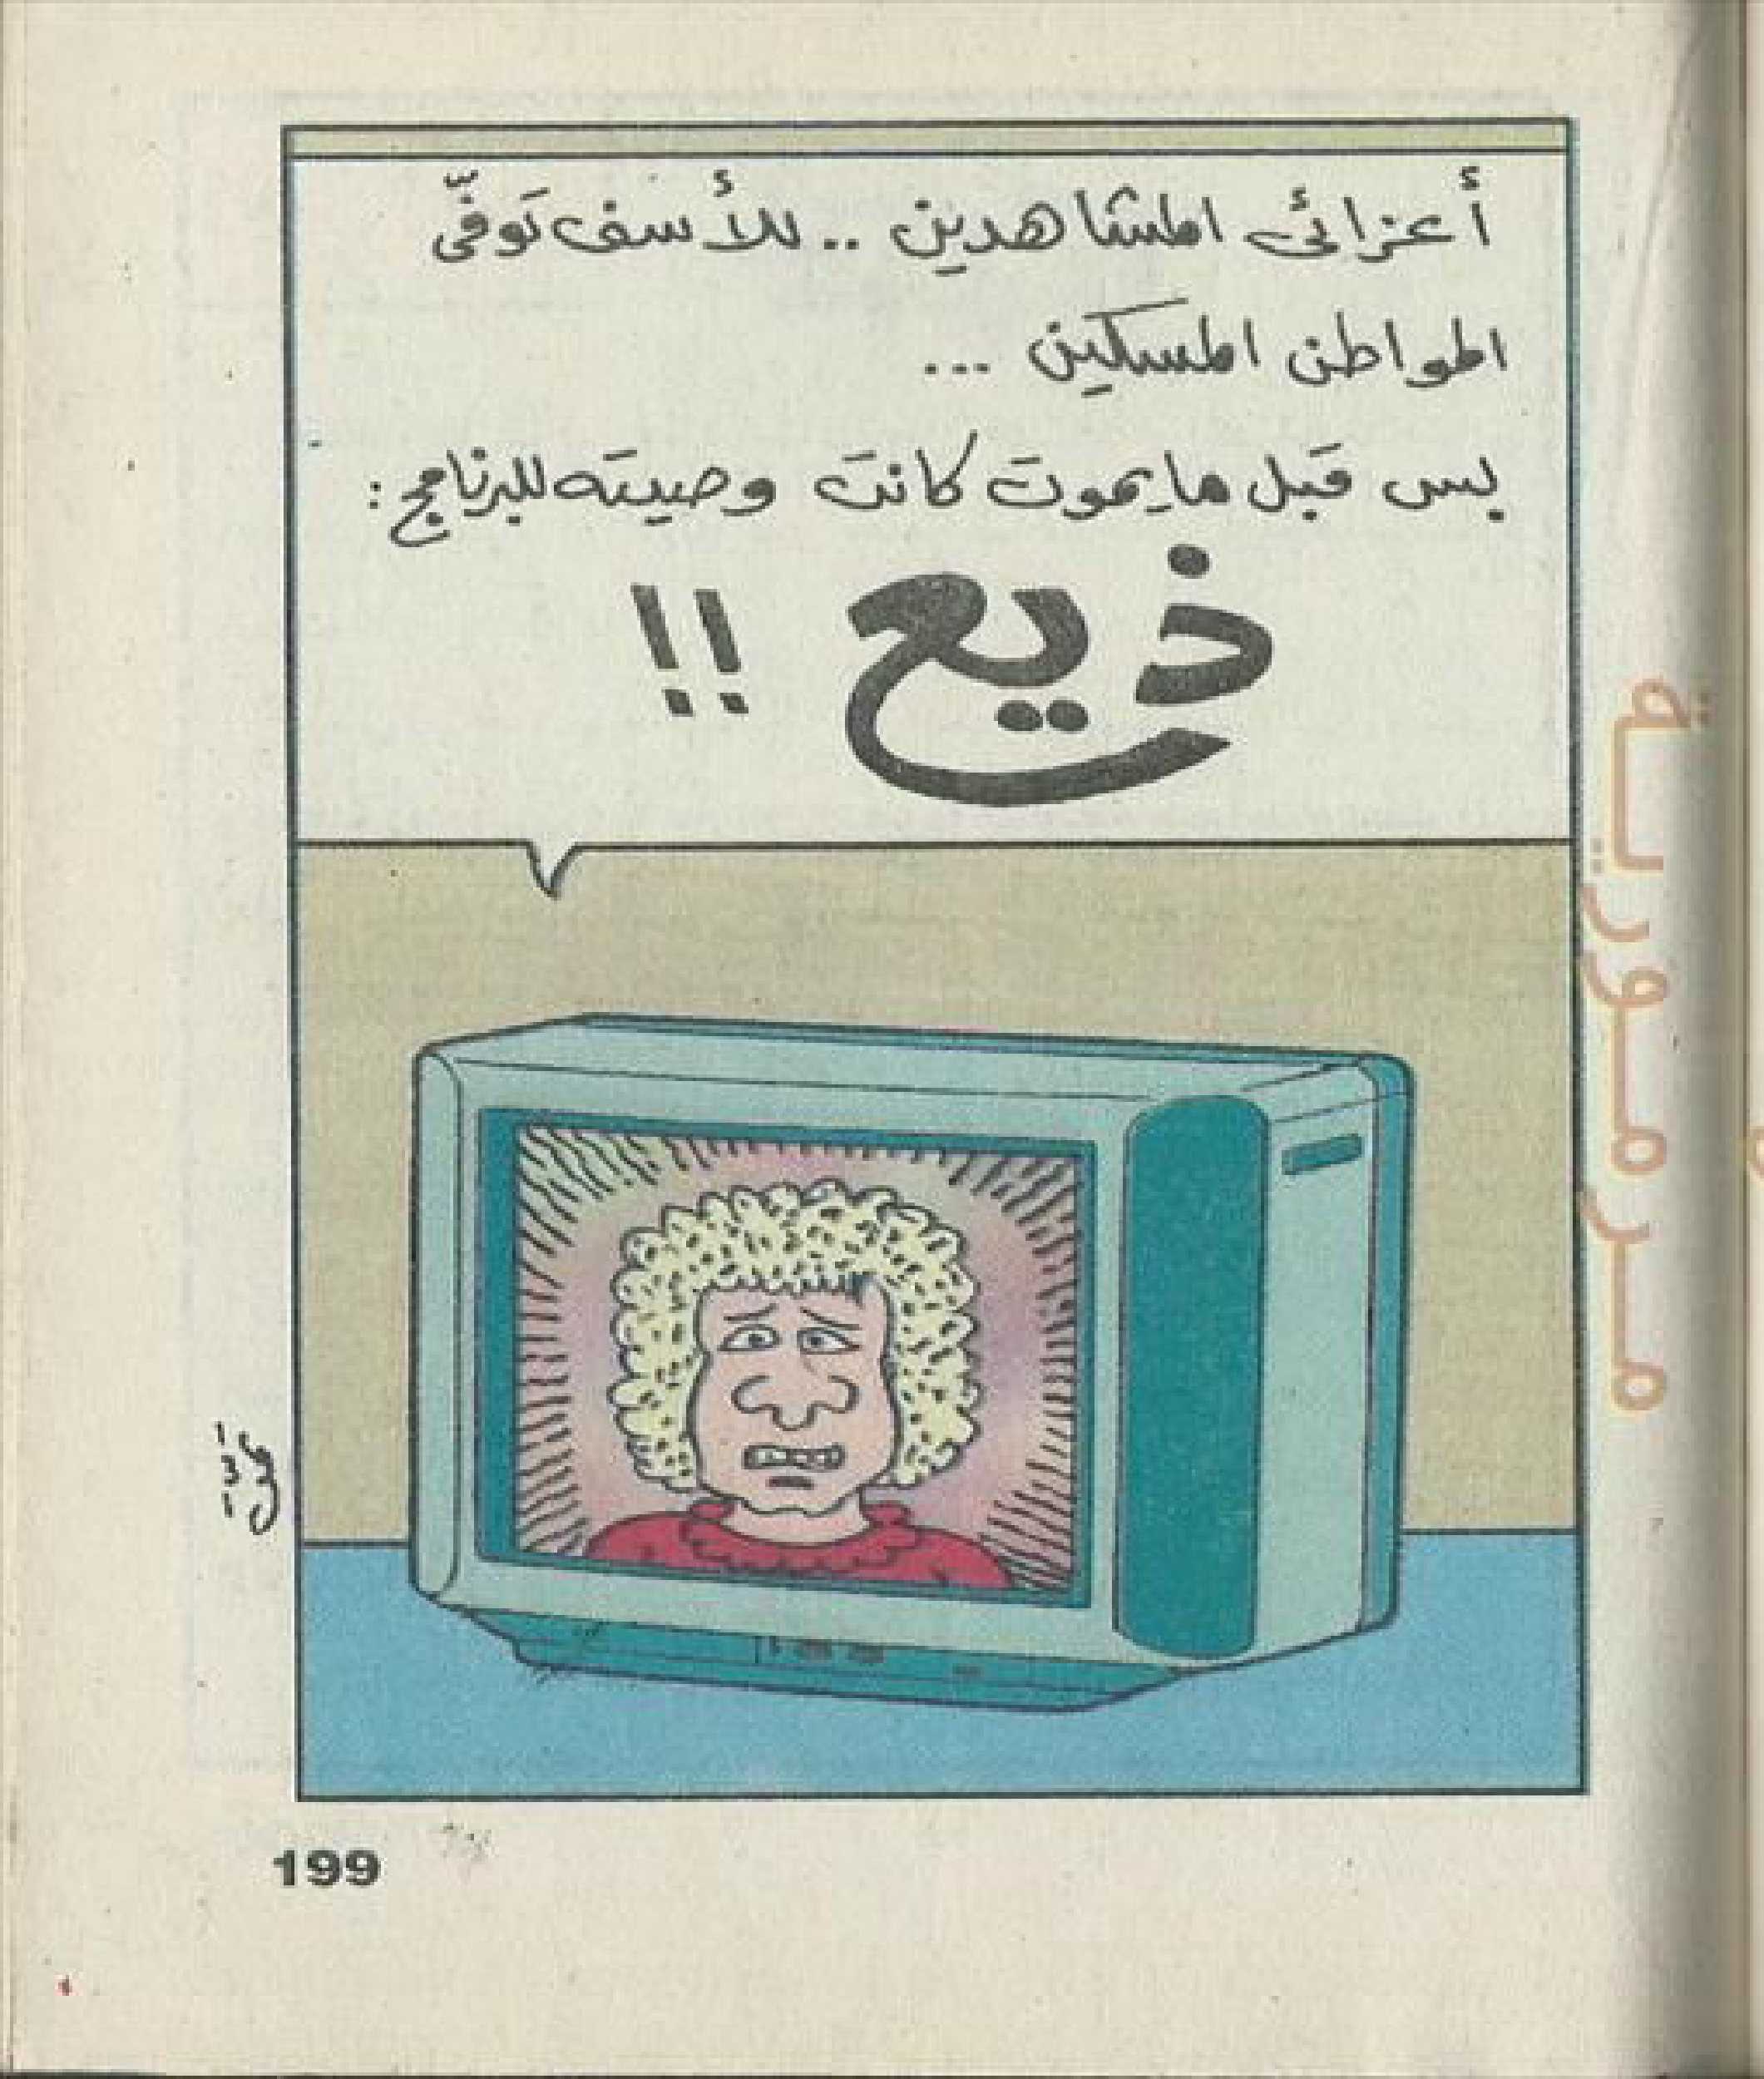 أعزائى المشاهدين .. للأسف تَوفّى
المواطن المسكين ...
بس قبل ما يموت كانت وصيته للبرنامج :
ذيع !!
مرمورية
199